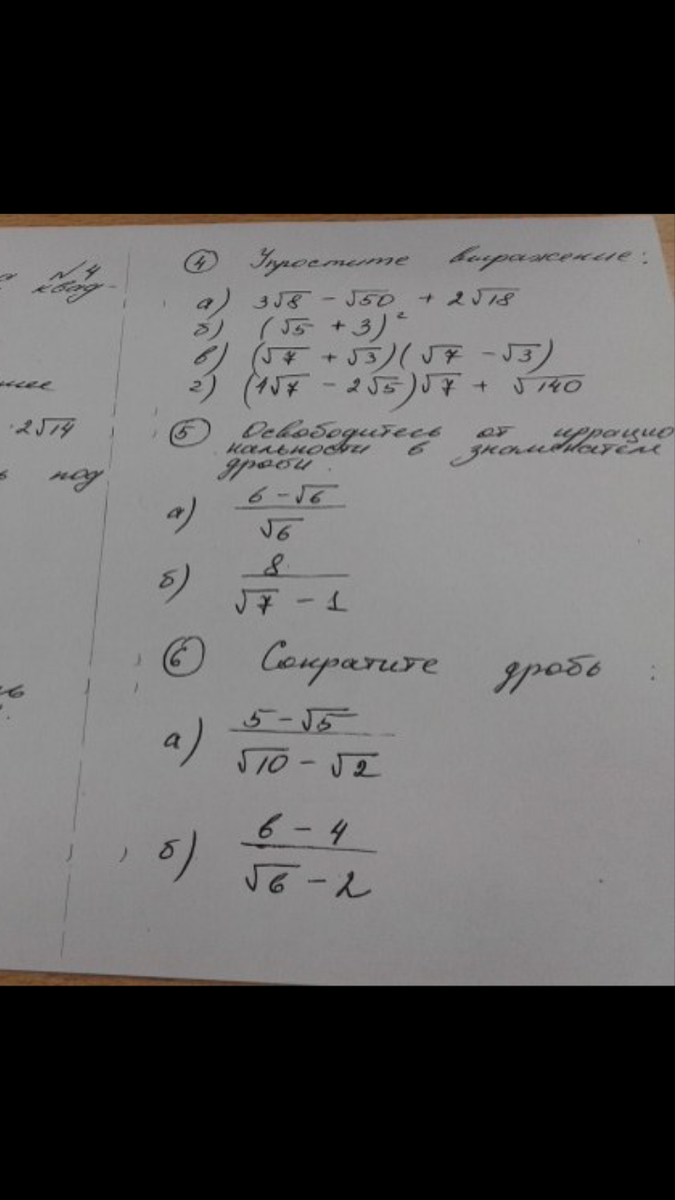 №4
квад-
2√14
под
④ Упростите выражение:
а) 3√8 - √50 + 2√18
б) (√5 + 3)²
в) (√7 + √3)(√7 - √3)
г) (1√7 - 2√5)√7 + √140
⑤ Освободитесь от иррацио
нальности в знаменателе
дроби.
а) 6 - √6
√6
б) 8
√7 - 1
⑥ Сократите дробь :
а) 5 - √5
√10 - √2
б) в - 4
√в - 2